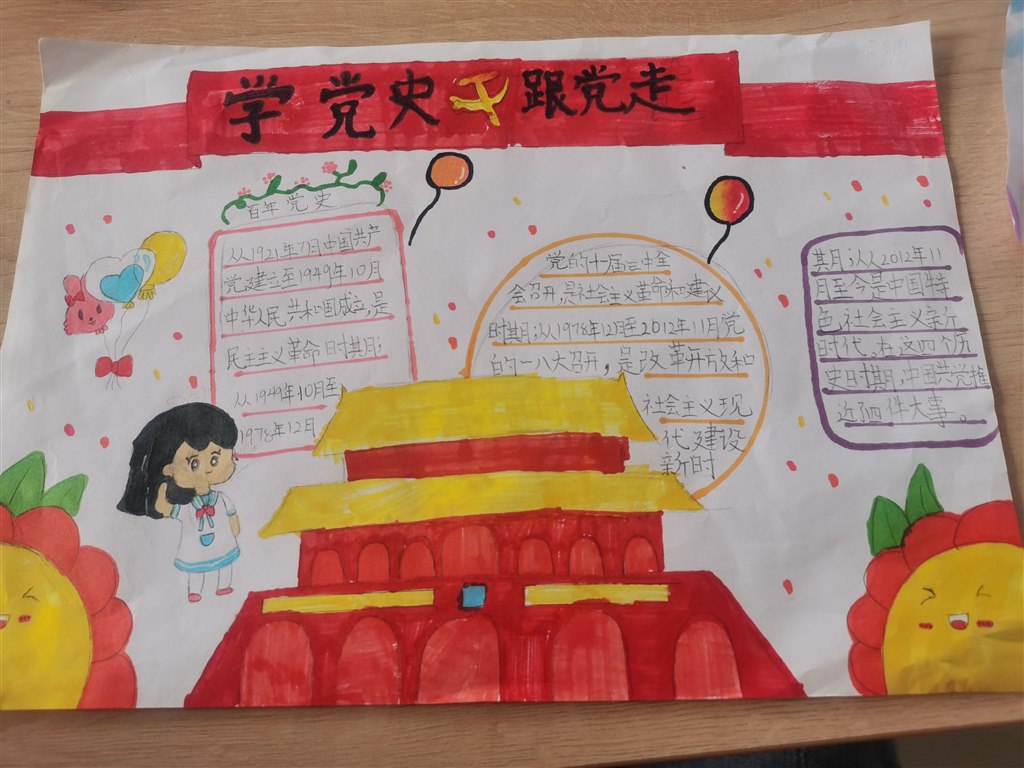 学党史跟党走
百年党史
从1921年7月中国共产
党建立至1949年10月
中华人民共和国成立,是
民主主义革命时其月;
从1949年10月至
1978年12月
党的十届三中全
会召开,是社会主义革命和建议
时其月;从1978年12月至2012年11月党
的一八大召开,是改革开放和
社会主义现
代建设
新时
其月;从从2012年11
月至今是中国特
色,社会主义新
时代。在这四个历
史时期,中国共党推
近了四件大事。